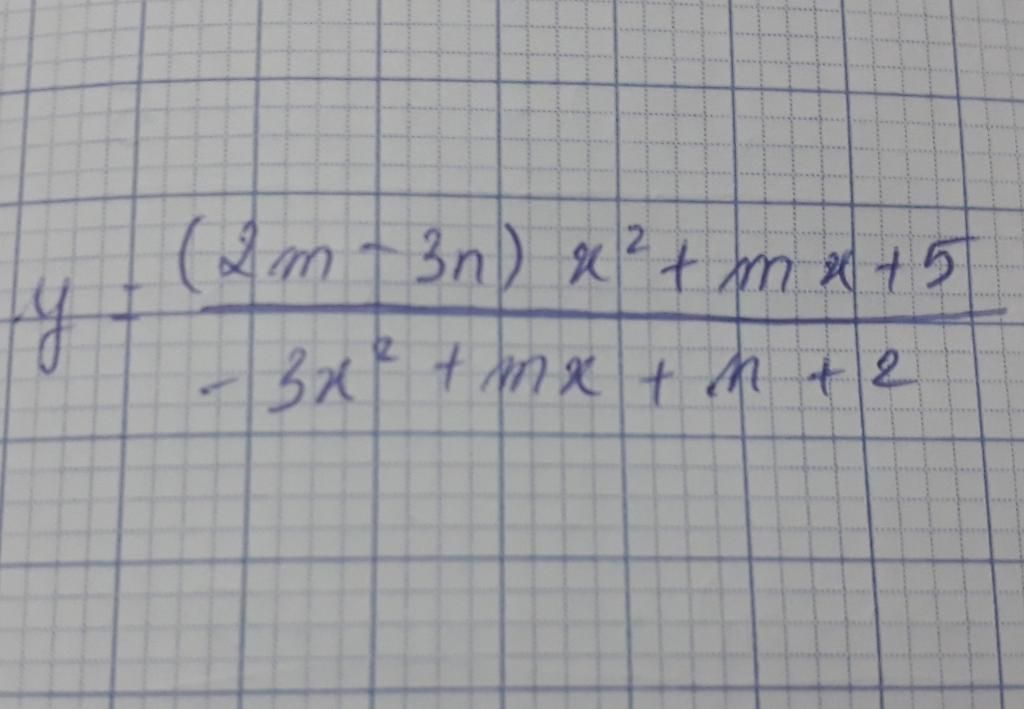 y = \frac{(2m - 3n) x^2 + mx + 5}{- 3x^2 + mx + n + 2}